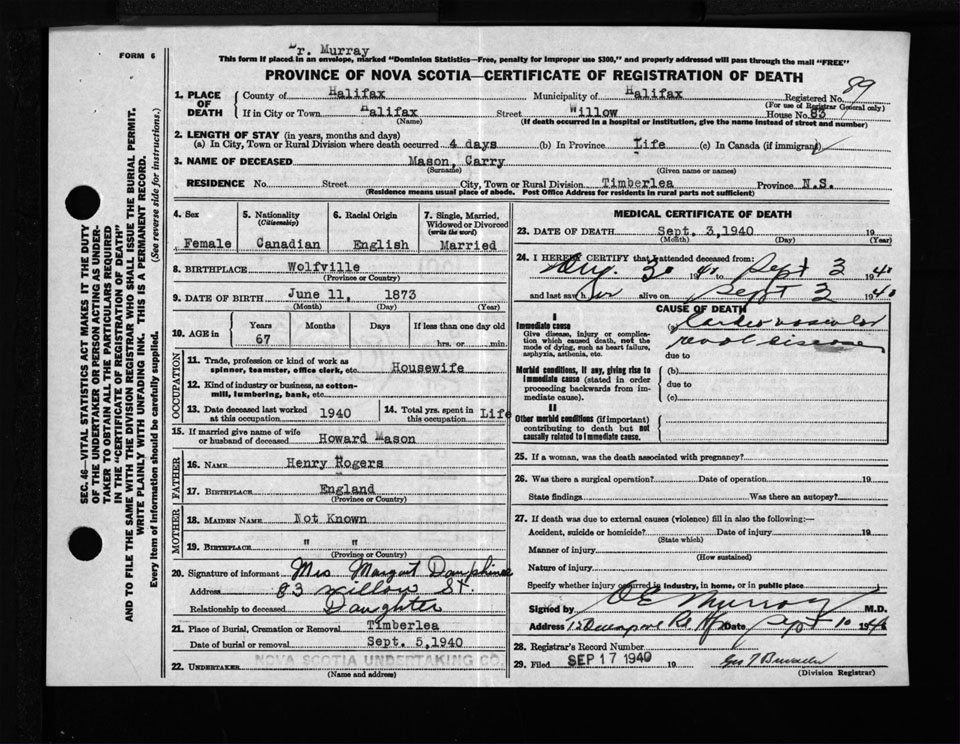 Dr. Murray
FORM 6
This form if placed in an envelope, marked "Dominion Statistics—Free, penalty for improper use $300," and properly addressed will pass through the mail "FREE"
PROVINCE OF NOVA SCOTIA—CERTIFICATE OF REGISTRATION OF DEATH
1. PLACE OF DEATH County of Halifax Municipality of Halifax Registered No. 89
(For use of Registrar General only)
If in City or Town Halifax Street Willow House No. 83
(Name) (If death occurred in a hospital or institution, give the name instead of street and number)
2. LENGTH OF STAY (in years, months and days)
(a) In City, Town or Rural Division where death occurred 4 days (b) In Province Life (c) In Canada (if immigrant)
3. NAME OF DECEASED Mason, Carry
(Surname) (Given name or names)
RESIDENCE No. Street City, Town or Rural Division Timberlea Province N.S.
(Residence means usual place of abode. Post Office Address for residents in rural parts not sufficient)
SEC. 46—VITAL STATISTICS ACT MAKES IT THE DUTY
OF THE UNDERTAKER OR PERSON ACTING AS UNDER-
TAKER TO OBTAIN ALL THE PARTICULARS REQUIRED
IN THE "CERTIFICATE OF REGISTRATION OF DEATH"
AND TO FILE THE SAME WITH THE DIVISION REGISTRAR WHO SHALL ISSUE THE BURIAL PERMIT.
WRITE PLAINLY WITH UNFADING INK. THIS IS A PERMANENT RECORD.
Every item of information should be carefully supplied. (See reverse side for instructions.)
4. Sex
Female
5. Nationality
(Citizenship)
Canadian
6. Racial Origin
English
7. Single, Married,
Widowed or Divorced
(write the word)
Married
8. BIRTHPLACE Wolfville
(Province or Country)
9. DATE OF BIRTH June 11, 1873
(Month) (Day) (Year)
10. AGE in Years Months Days If less than one day old
67 hrs. or min.
OCCUPATION
11. Trade, profession or kind of work as
spinner, teamster, office clerk, etc. Housewife
12. Kind of industry or business, as cotton-
mill, lumbering, bank, etc.
13. Date deceased last worked
at this occupation 1940
14. Total yrs. spent in
this occupation Life
15. If married give name of wife
or husband of deceased Howard Mason
FATHER
16. NAME Henry Rogers
17. BIRTHPLACE England
(Province or Country)
MOTHER
18. MAIDEN NAME Not Known
19. BIRTHPLACE " "
(Province or Country)
20. Signature of informant Mrs Margaret Dauphinee
Address 83 Willow St.
Relationship to deceased Daughter
21. Place of Burial, Cremation or Removal Timberlea
Date of burial or removal Sept. 5, 1940
22. UNDERTAKER NOVA SCOTIA UNDERTAKING CO.
(Name and address)
MEDICAL CERTIFICATE OF DEATH
23. DATE OF DEATH Sept. 3, 1940 19
(Month) (Day) (Year)
24. I HEREBY CERTIFY that I attended deceased from:
Aug 30 1940 to Sept 3 1940
and last saw her alive on Sept 3 1940
CAUSE OF DEATH
I
Immediate cause
Give disease, injury or complica-
tion which caused death, not the
mode of dying, such as heart failure,
asphyxia, asthenia, etc.
(a) Cardio vascular
renal disease
due to
Morbid conditions, if any, giving rise to
immediate cause (stated in order
proceeding backwards from im-
mediate cause).
(b)
due to
(c)
II
Other morbid conditions (if important)
contributing to death but not
causally related to immediate cause.
25. If a woman, was the death associated with pregnancy?
26. Was there a surgical operation? Date of operation 19
State findings Was there an autopsy?
27. If death was due to external causes (violence) fill in also the following:—
Accident, suicide or homicide? Date of injury 19
(State which)
Manner of injury
(How sustained)
Nature of injury
Specify whether injury occurred in industry, in home, or in public place
Signed by Murray M.D.
Address Date Sept 10 1940
28. Registrar's Record Number
29. Filed SEP 17 1940 19
(Division Registrar)